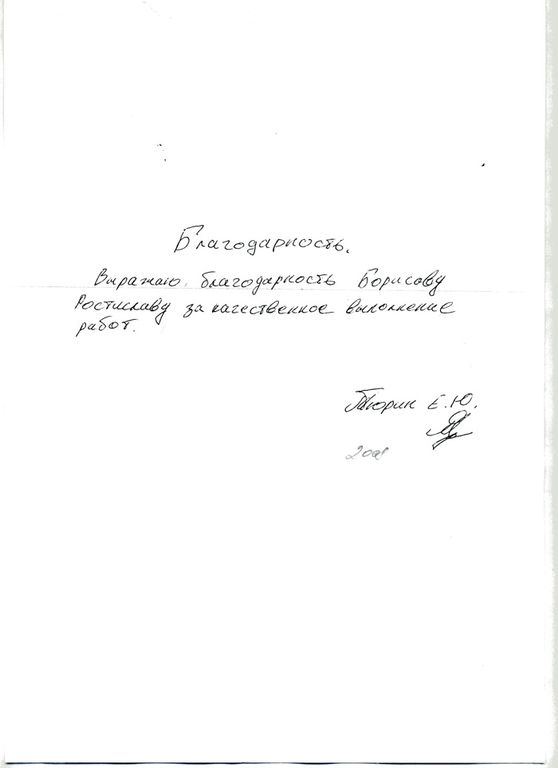 Благодарность.
Выражаю благодарность Борисову
Ростиславу за качественное выполнение
работ.
Тюрин Е.Ю.